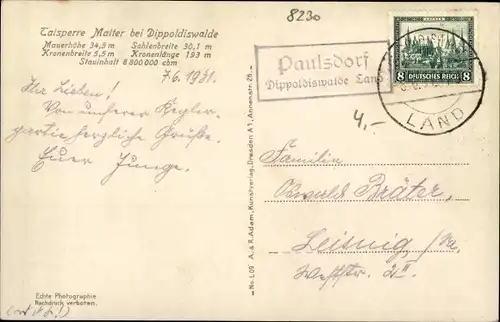 8230
Talsperre Malter bei Dippoldiswalde
Mauerhöhe 34,5 m Sohlenbreite 30,1 m
Kronenbreite 5,5 m Kronenlänge 193 m
Stauinhalt 8 800 000 cbm
7.6.1931.
Ihr Lieben!
Von unserer Kegler-
partie herzliche Grüße.
Euer Junge.
Paulsdorf
Dippoldiswalde Land
8 DEUTSCHES REICH 8
LAND
4,-
Familie
Oswald Bräter,
Leisnig, /Sa.
No. L 09 A. & R. Adam, Kunstverlag, Dresden A 1, Annenstr. 28
Echte Photographie
Nachdruck verboten.